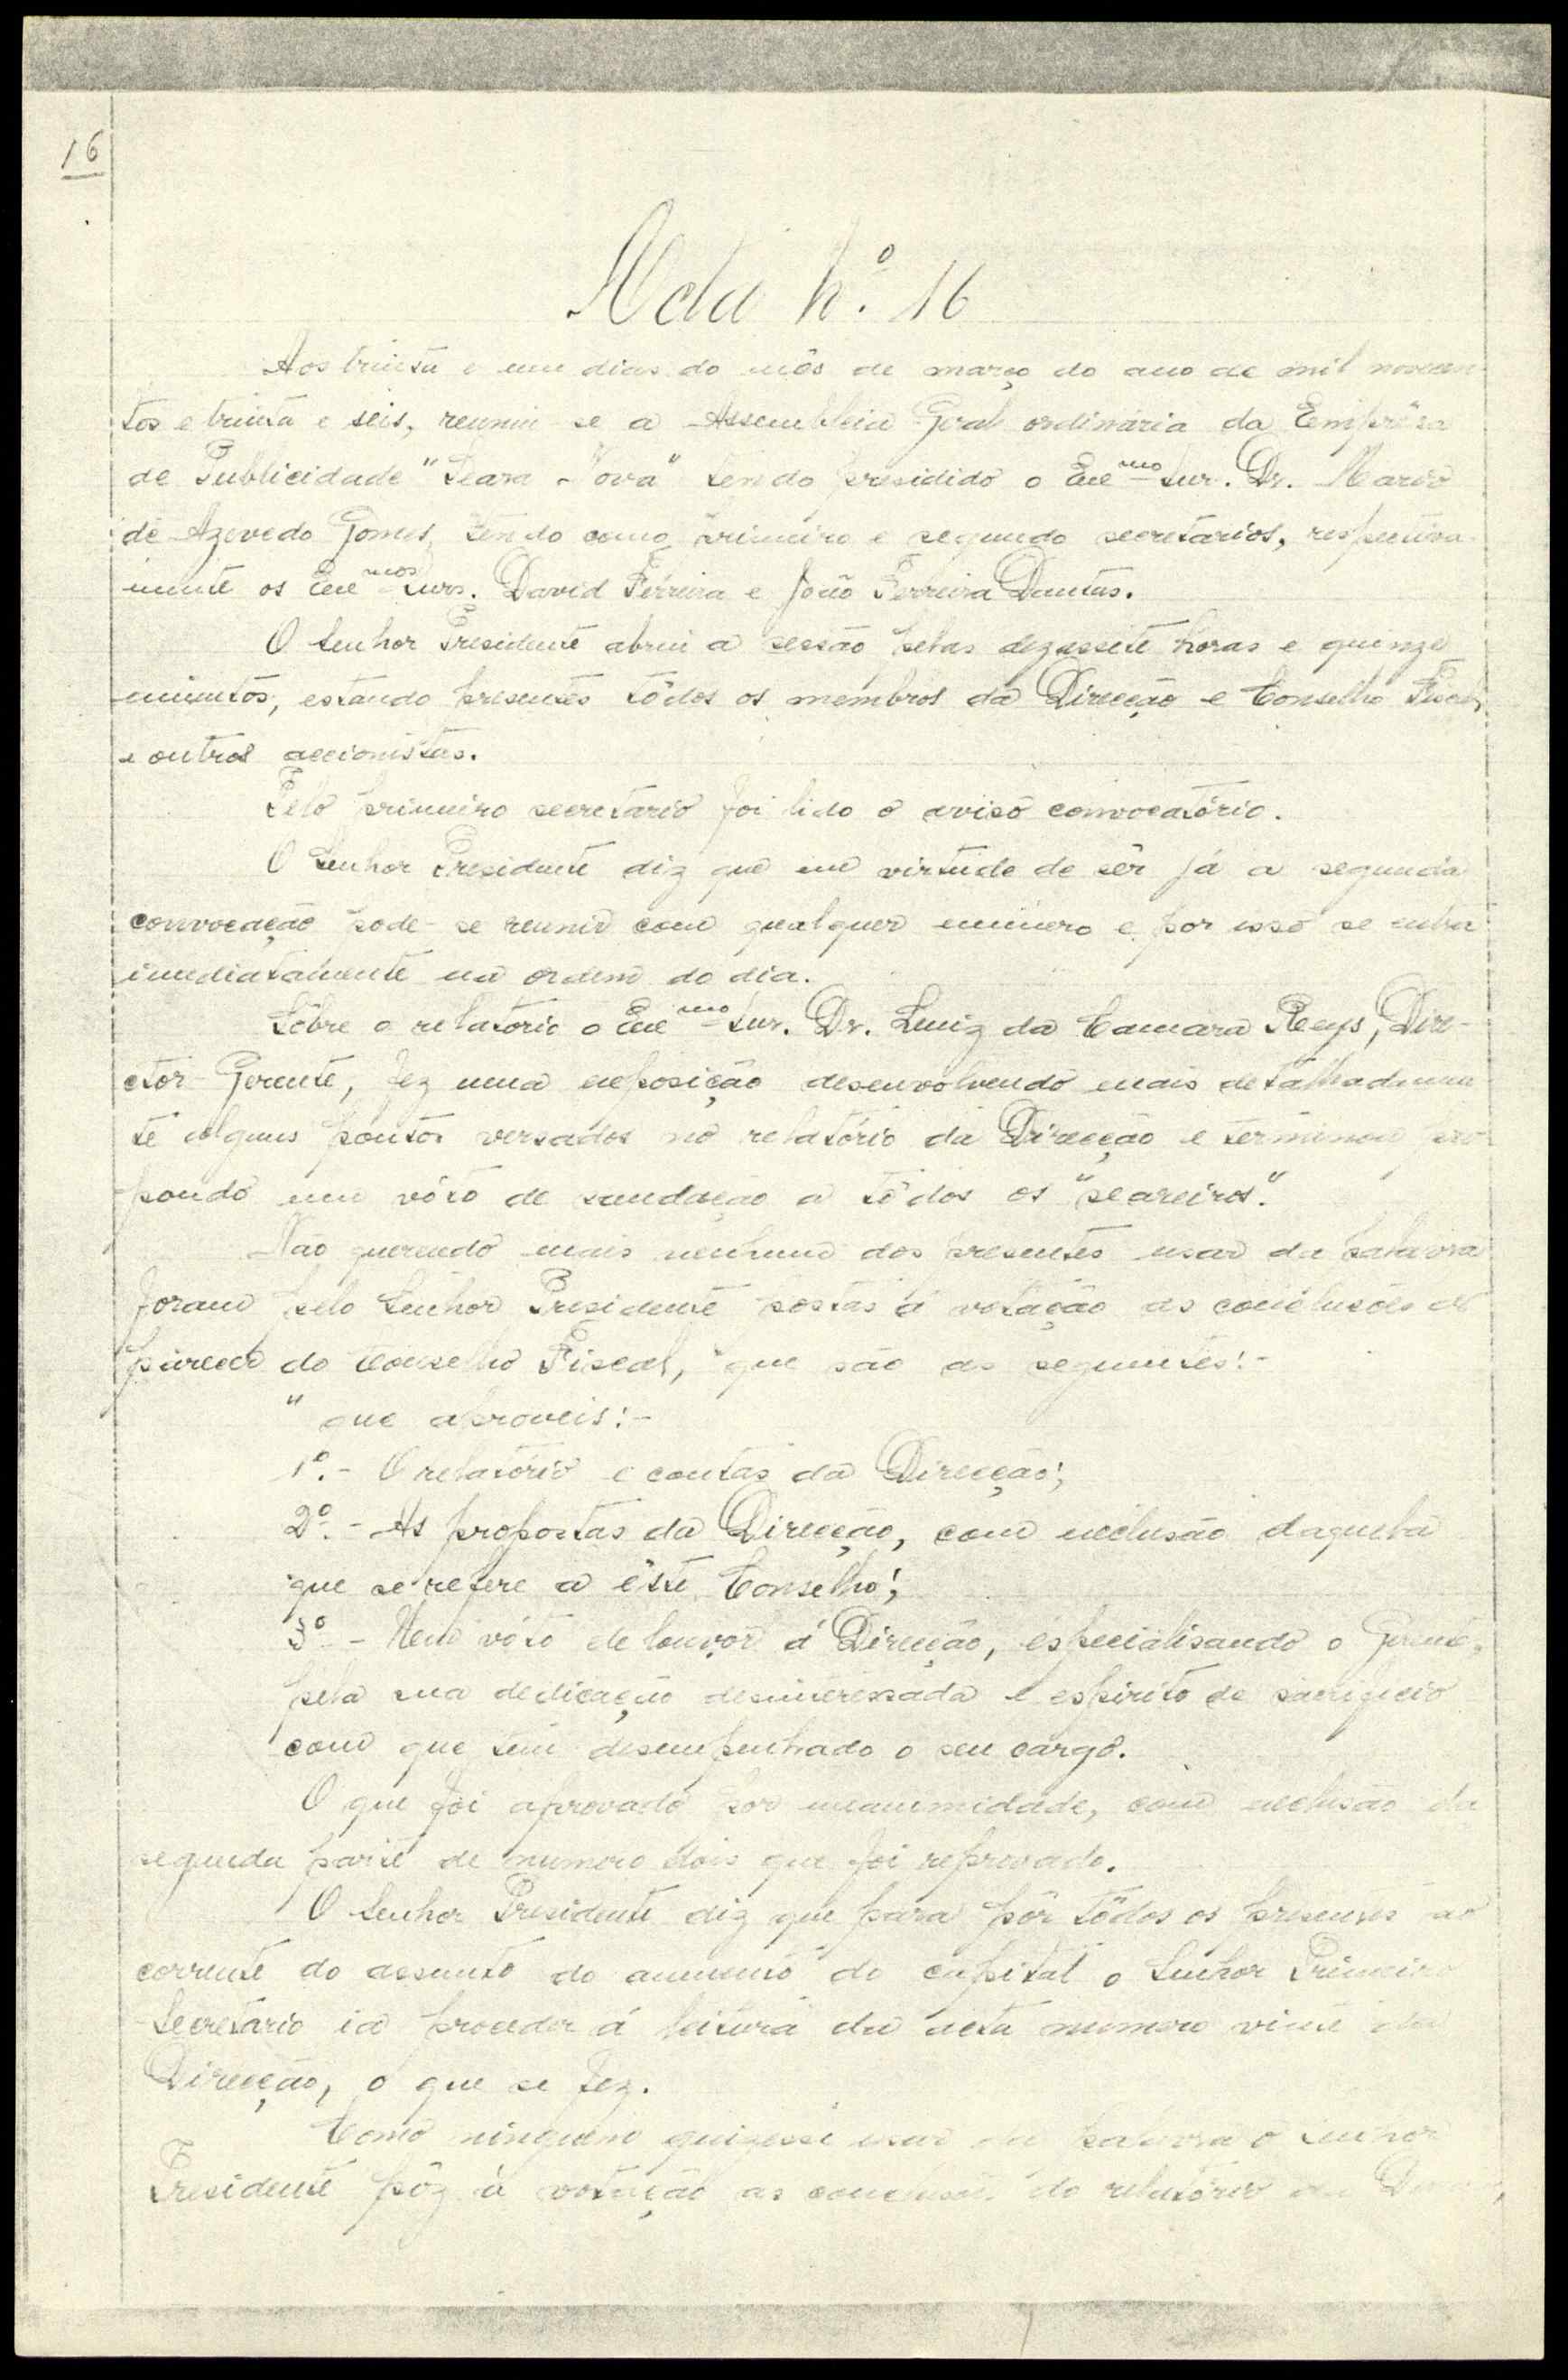 16
Acta N.º 16
Aos trinta e um dias do mês de março do ano de mil novecen-
tos e trinta e seis, reuniu-se a Assembleia Geral ordinária da Emprêsa
de Publicidade "Seara Nova" sendo presidido o Exe mo Snr. Dr. Mario
de Azevedo Gomes, tendo como primeiro e segundo secretarios, respectiva-
mente os Exe mos Snrs. David Ferreira e João Ferreira Dantas.
O Senhor Presidente abriu a sessão pelas dezassete horas e quinze
minutos, estando presentes tôdos os membros da Direcção e Conselho Fiscal,
e outros accionistas.
Pelo primeiro secretario foi lido o aviso convocatório.
O Senhor Presidente diz que em virtude de sêr já a segunda
convocação pode-se reunir com qualquer numero e por isso se entra
imediatamente na ordem do dia.
Sôbre o relatorio o Exe mo Snr. Dr. Luiz da Camara Reys, Dire-
ctor-Gerente, fez uma exposição desenvolvendo mais detalhadamen-
te alguns pontos versados no relatório da Direcção e terminou pro-
pondo um vóto de saudação a tôdos os "seareiros".
Não querendo mais nenhum dos presentes usar da palavra
foram pelo Senhor Presidente postas á votação as conclusões do
parecer do Conselho Fiscal, que são as seguintes:-
" que aproveis:-
1º.- O relatório e contas da Direcção;
2º.- As propostas da Direcção, com exclusão daquela
que se refere a êste Conselho;
3º - Um vóto de louvor á Direcção, especialisando o Gerente,
pela sua dedicação desinteressada e espirito de sacrificio
com que tem desempenhado o seu cargo.
O que foi aprovado por unanimidade, com exclusão da
segunda parte de numero dois que foi reprovado.
O Senhor Presidente diz que para pôr tôdos os presentes ao
corrente do assunto do aumento do capital o Senhor Primeiro
Secretario ia proceder á leitura da acta numero vinte da
Direcção, o que se fez.
Como ninguem quizesse usar da palavra o Senhor
Presidente pôz á votação as conclusões do relatório da